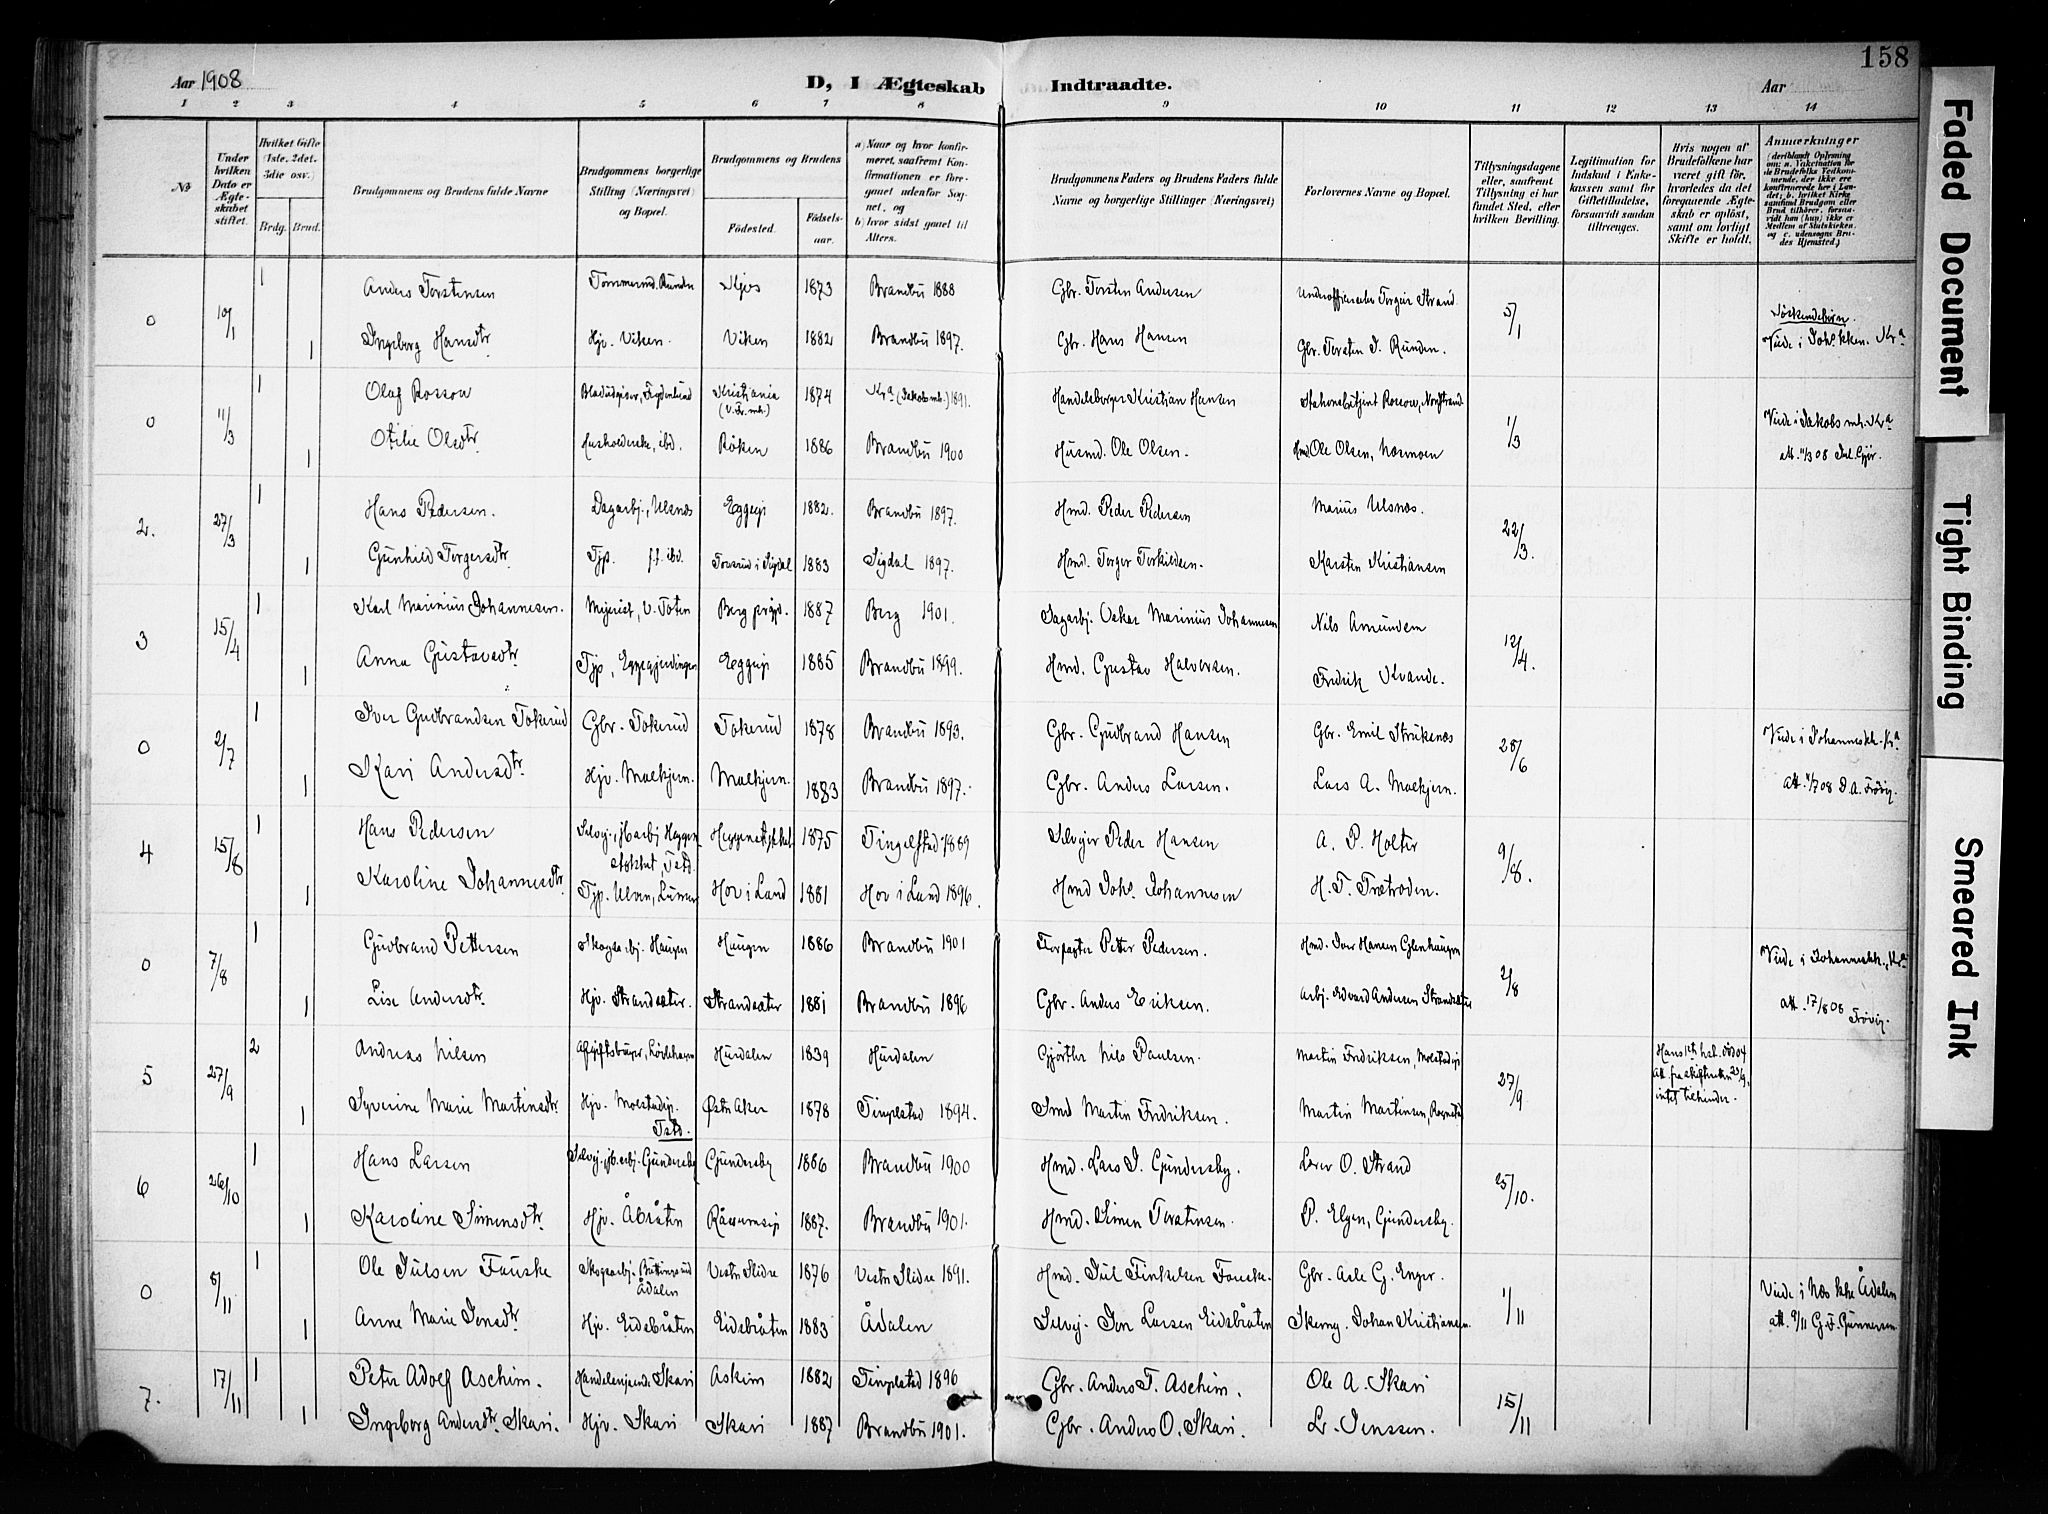 158
Aar 1908
D, I Ægteskab Indtraadte.
Aar
1 2 3 4 5 6 7 8 9 10 11 12 13 14
No
Under hvilken Dato er Ægteskabet stiftet.
Hvilket Gifte (1ste, 2det, 3die osv.)
Brdg. Brud.
Brudgommens og Brudens fulde Navne
Brudgommens borgerlige Stilling (Næringsvei) og Bopæl.
Brudgommens og Brudens
Födested. Födselsaar.
a) Naar og hvor konfirmeret, saafremt Konfirmationen er foregaaet udenfor Sognet, og
b) hvor sidst gaaet til Alters.
Brudgommens Faders og Brudens Faders fulde Navne og borgerlige Stillinger (Næringsvei)
Forlovernes Navne og Bopæl.
Tillysningsdagene eller, saafremt Tillysning ei har fundet Sted, efter hvilken Bevilling.
Legitimation for Indskud i Enkekassen samt for Giftetilladelse, forsaavidt saadan tiltrænges.
Hvis nogen af Brudefolkene har været gift för, hvorledes da det foregaaende Ægteskab er oplöst, samt om lovligt Skifte er holdt.
Anmærkninger
0 10/1 1 Anders Torstensen 1873 Brandbu 1888 Gbr. Torsten Andersen Underofficerselev Torgeir Strand 5/1 Söskendebörn.
1 Ingeborg Hansdtr Hjv. Viken Viken 1882 Brandbu 1897. Gbr. Hans Hansen Gbr. Torsten J. Runden. Viede i Johs.kken. Kra
0 11/3 1 Olaf Rossow Kristiania 1874 Kra (Jakobs mh.) 1891. Handelsborger Kristian Hansen Stationsbetjent Rossow, Nordstrand 1/3 Viede i Jakobs mh. Kra
1 Otilie Olsdtr Husholderske, ibd. Röken 1886 Brandbu 1900 Husmd. Ole Olsen. Hmd Ole Olsen, Næsmoen att. 11/3 08 Jul. Gjör.
2. 27/3 1 Hans Pedersen. Dagarbj., Ulsnæs Eggeeje 1882. Brandbu 1897. Hmd. Peder Pedersen Marius Ulsnæs. 22/3.
1 Gunhild Torgersdtr Tjp. f.f. ibd. i Sigdal 1883 Sigdal 1897. Hmd. Torger Torkildsen. Karsten Kristiansen
3 15/4 1 Karl Marinius Johannesen. Mejerist, V. Toten Berg prgjd. 1887 Berg 1901. Sagarbj. Oskar Marinius Johannesen Nils Amundsen 12/4.
1 Anna Gustavsdtr Tjp, Eggegjerdingen Eggeeje 1885 Brandbu 1899. Hmd. Gustav Halvorsen. Fredrik Kvande.
0 2/7 1 Iver Gudbrandsen Tokerud Gbr. Tokerud Tokerud 1878 Brandbu 1893. Gbr. Gudbrand Hansen Gbr. Emil Strikenæs 28/6 Viede i Johanneskk. Kra
1 Kari Andersdtr Hjv. Molkjern. Molkjern. 1883 Brandbu 1897. Gbr. Anders Larsen. Lars A. Molkjern. att. 4/7 08 D. A. Frövig.
4 15/8 1 Hans Pedersen 1875 Tingelstad 1889 Selvejer Peder Hansen A. P. Holter 9/8.
1 Karoline Johannesdtr. Tjp. Ulven, Lunner Hov i Land 1881 Hov i Land 1896. Hmd Johs. Johannesen H. T. Trætroden.
0 7/8 1 Gudbrand Pettersen Skogsarbj. Haugen Haugen 1886 Brandbu 1901 Forpagter Petter Pedersen. Hmd. Iver Hansen Glenhaugen 2/8 Viede i Johanneskk., Kra
1 Lise Andersdtr. Hjv. Strandsæter. Strandsæter 1881 Brandbu 1896 Gbr. Anders Eriksen. Arbj. Edvard Andersen Strandsæter att. 17/8 08 Frövig.
5 27/9 2 Andreas Nilsen Hurdalen 1839 Hurdalen Gjörtler Nils Paulsen. Martin Fredriksen, Molstadeje 27/9 Hans 1ste h. död 04
Att. fra skifteretten 23/9, intet tilhinder.
1 Syverine Marie Martinsdtr. Hjv. Molstadeje. Tstd. Östn Aker 1878 Tingelstad 1894. Smd Martin Fredriksen. Martin Martinsen,
6 26/10 1 Hans Larsen Gundersby 1886 Brandbu 1900 Hmd. Lars J. Gundersby. Lærer O. Strand 25/10.
1 Karoline Simensdtr. Hjv. Åbråten 1887. Brandbu 1901. Hmd. Simen Torstensen. P. Elgen, Gundersby.
0 8/11 1 Ole Julsen Fauske Skogsarbj. Buttingsrud Ådalen Vestn Slidre 1876 Vestn Slidre 1891. Hmd. Jul Finkelsen Fauske. Gbr. Asle G. Enger. 1/11 Viede i Næs kke Ådalen
1 Anne Marie Jonsdtr. Hjv. Eidsbråten Eidsbråten 1883 Ådalen Selvej. Jon Larsen Eidsbråten Skomg. Johan Kristiansen. att. 9/11 G. F. Gunnersen
7. 17/11 1 Peter Adolf Aschim. Handelsbetj. Skari Askim 1882 Tingelstad 1896 Gbr. Anders T. Aschim. Ole A. Skari 15/11
1 Ingeborg Andersdtr. Skari. Hjv. Skari Skari 1887 Brandbu 1901. Gbr. Anders O. Skari. Lr. Jenssen.
Faded Document
Tight Binding
Smeared Ink